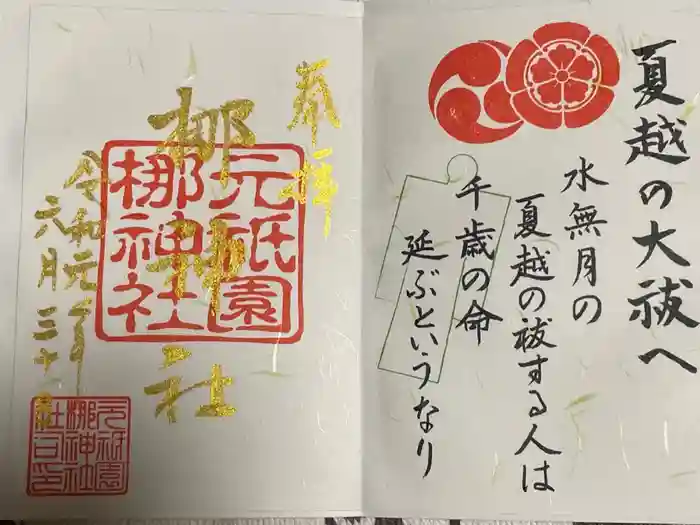 夏越の大祓へ
水無月の
夏越の祓する人は
千歳の命
延ぶというなり
奉拝
梛神社
令和元年
六月三十日
元祇園
梛神社
元祇園
梛神社
社司之印